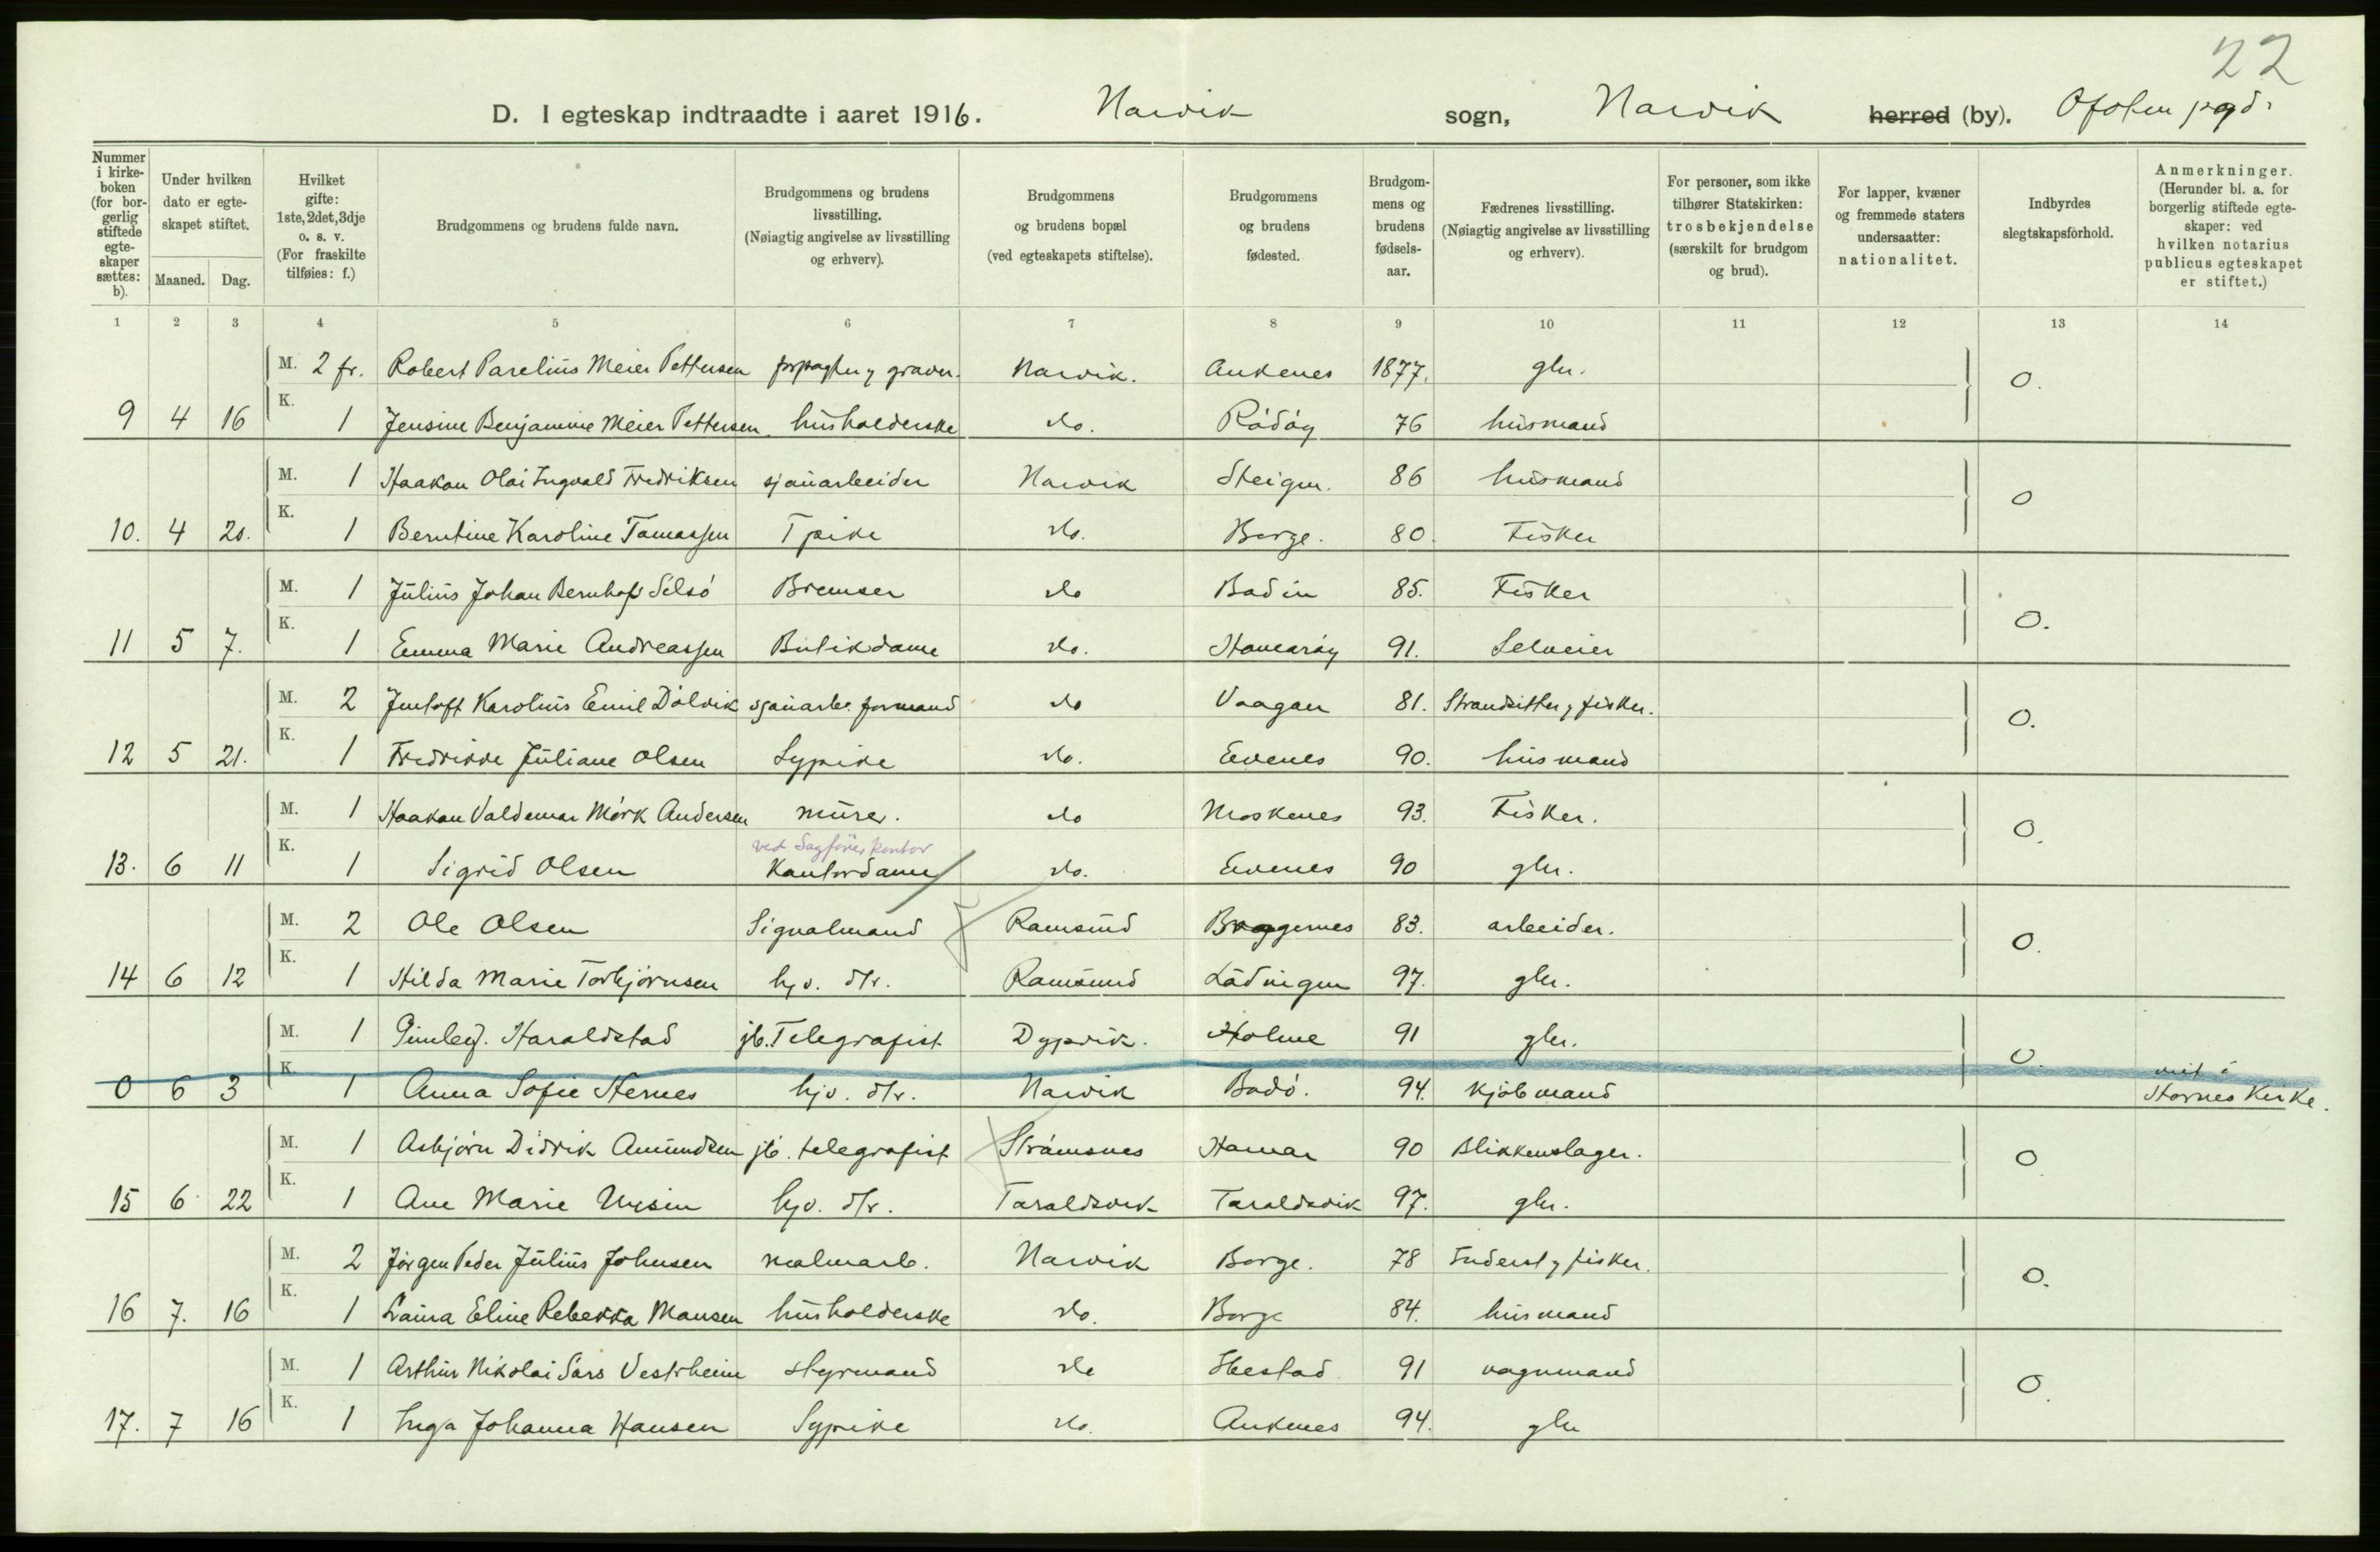 22
D. I egteskap indtraadte i aaret 1916. Narvik sogn, Narvik herred (by). Ofoten pgd.
Nummer i kirkeboken (for borgerlig stiftede egteskaper sættes: b).
Under hvilken dato er egteskapet stiftet.
Maaned. Dag.
Hvilket gifte: 1ste, 2det, 3dje o. s. v. (For fraskilte tilføies: f.)
Brudgommens og brudens fulde navn.
Brudgommens og brudens livsstilling. (Nøiagtig angivelse av livsstilling og erhverv).
Brudgommens og brudens bopæl (ved egteskapets stiftelse).
Brudgommens og brudens fødested.
Brudgommens og brudens fødselsaar.
Fædrenes livsstilling. (Nøiagtig angivelse av livsstilling og erhverv).
For personer, som ikke tilhører Statskirken: trosbekjendelse (særskilt for brudgom og brud).
For lapper, kvæner og fremmede staters undersaatter: nationalitet.
Indbyrdes slegtskapsforhold.
Anmerkninger. (Herunder bl. a. for borgerlig stiftede egteskaper: ved hvilken notarius publicus egteskapet er stiftet.)
1 2 3 4 5 6 7 8 9 10 11 12 13 14
M. 2 fr. Robert Parelius Meier Pettersen graver. Narvik. Ankenes 1877. gbr. 0.
9 4 16 K. 1 Jensine Benjamine Meier Pettersen husholderske do. Rødøy 76 husmand
M. 1 Haakon Olai Ingvald Fredriksen sjauarbeider Narvik Steigen. 86 husmand 0
10. 4 20. K. 1 Berntine Karoline Tomassen Tpike do. Borge. 80. Fisker
M. 1 Julius Johan Bernhof Selsö Bremser do Bodin 85. Fisker 0.
11 5 7. K. 1 Emma Marie Andreassen Butikdame do. Hamarøy 91. Selveier
M. 2 Jentoft Karolius Emil Dølvik sjauarb. formand do Vaagan 81. Strandsitter y fisker. 0.
12 5 21. K. 1 Fredrikke Juliane Olsen Sypike do. Evenes 90. husmand
M. 1 Haakon Valdemar Mörk Andersen murer. do Moskenes 93. Fisker. 0.
ved Sagförer kontor
13. 6 11 K. 1 Sigrid Olsen Kontordame do. Evenes 90 gbr.
M. 2 Ole Olsen Signalmand Ramsund Braggernes 83. arbeider. 0.
14 6 12 K. 1 Hilda Marie Torbjørnsen hjv. dtr. Ramsund Lødingen 97. gbr.
M. 1 Haraldstad jb. Telegrafist Dypvik. Holme 91 gbr. 0.
0 6 3 K. 1 Anna Sofie Hernes hjv. dtr. Narvik Bodø. 94. Kjøbmand viet i Hornes Kirke.
M. 1 Asbjørn Didrik Amundsen jb. telegrafist Strømsnes Hamar 90 Blikkenslager. 0
15 6 22 K. 1 Ane Marie hjv. dtr. Taraldsvik Taraldsvik 97. gbr.
M. 2 Jørgen Peder Julius Johnsen malmarb. Narvik Borge. 78 Inderst y fisker. 0.
16 7. 16 K. 1 Laura Eline Rebekka Mansen husholderske do. Borge 84. husmand
M. 1 Arthur Nikolai Sars Vestrheim styrmand do Ibestad 91 vognmand 0.
17. 7 16 K. 1 Inga Johanna Hansen Sypike do. Ankenes 94. gbr